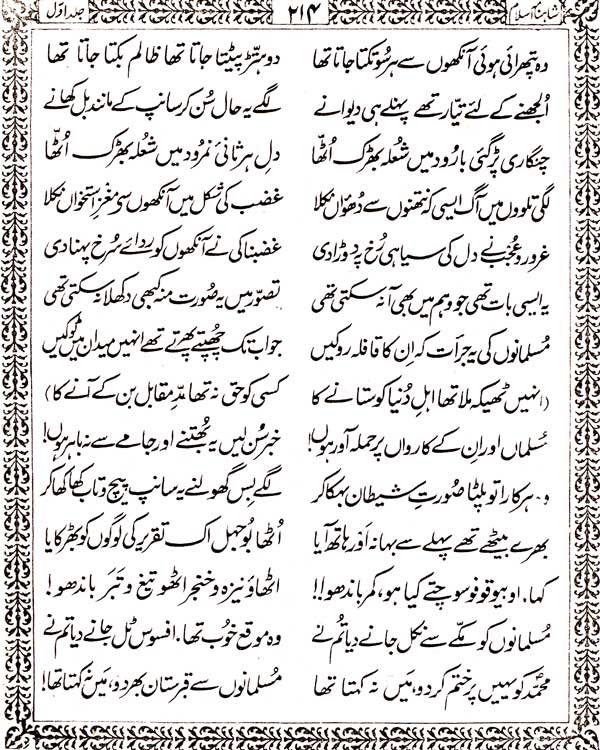 شاہنامۂ اسلام ۲۱۴ جلد اوّل
وہ پتھرائی ہوئی آنکھوں سے ہر سُو تکتا جاتا تھا دو ہتّڑ پیٹتا جاتا تھا ظالم بکتا جاتا تھا
اُلجھنے کے لئے تیّار تھے پہلے ہی دیوانے لگے یہ حال سُن کر سانپ کے مانند بل کھانے
چنگاری پڑ گئی بارُود میں شعُلہ بھڑک اُٹھّا دلِ ہر ثانیٔ نمرود میں شعُلہ بھڑک اُٹھّا
لگی تلووں میں آگ ایسی کہ نتھنوں سے دھوُاں نکلا غضب کی شکل میں آنکھوں سے مغزِ استخواں نکلا
غرور و عُجب نے دل کی سیاہی رُخ پہ دوڑا دی غضبناکی نے آنکھوں کو ردائے سُرخ پہنا دی
یہ ایسی بات تھی جو وہم میں بھی آ نہ سکتی تھی تصوّر میں یہ صُورت منہ کبھی دکھلا نہ سکتی تھی
مُسلمانوں کی یہ جرأت کہ اِن کا قافلہ روکیں جو اب تک چھُپتے پھرتے تھے انہیں میدان میں ٹوکیں
(انہیں ٹھیکہ ملا تھا اہلِ دُنیا کو ستانے کا کسی کو حق نہ تھا مدِّ مقابل بن کے آنے کا)
مُسلماں اور اِن کے کارواں پر حملہ آور ہوں! خبر سُن لیں یہ بھُتنے اور جامے سے نہ باہر ہوں!
وہ ہرکارا تو پلٹا صُورتِ شیطان بہکا کر لگے بِس گھولنے یہ سانپ پیچ و تاب کھا کھا کر
بھرے بیٹھے تھے پہلے سے بہانہ اَور ہاتھ آیا اُٹھا بُوجہل اک تقریر کی لوگوں کو بھڑکایا
کہا۔ او بیوقوفو سوچتے کیا ہو، کمر باندھو!! اٹھاؤ نیزہ و خنجر اٹھو تیغ و تبَر باندھو!
مُسلمانوں کو مکّے سے نکل جانے دیا تُم نے وہ موقع خُوب تھا۔ افسوس ٹل جانے دیا تم نے
محمّدؐ کو یہیں پر ختم کر دو، میَں نہ کہتا تھا مُسلمانوں سے قبرستان بھر دو، میَں نہ کہتا تھا!